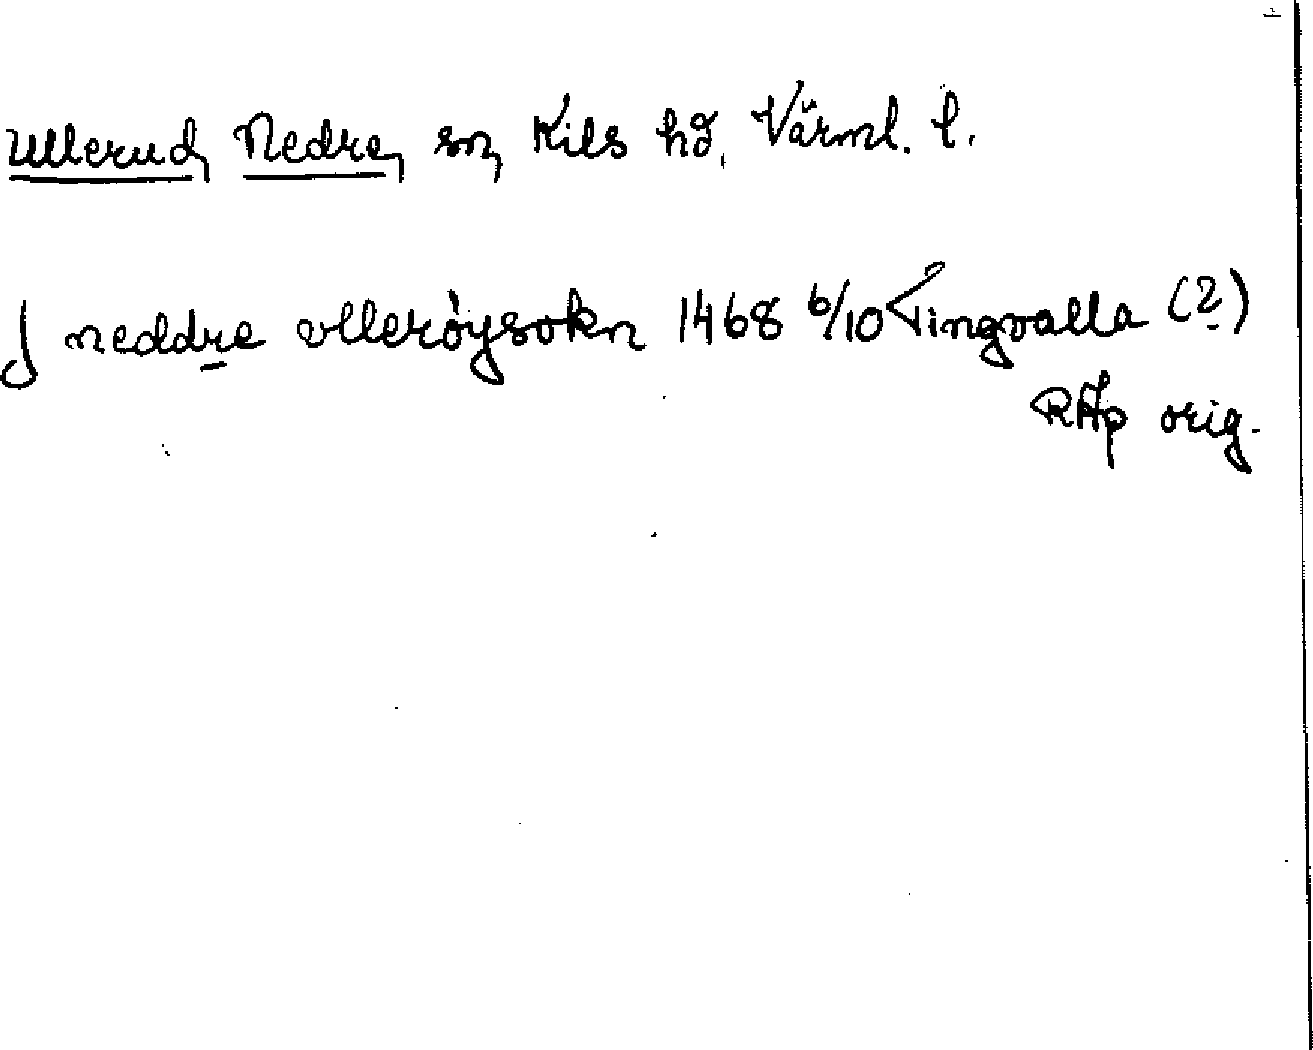 Ullerud, Nedre, sn, Kils hd, Värml. l.
J neddre ollerøysokn 1468 6/10 Tingvalla (?)
RAp orig.